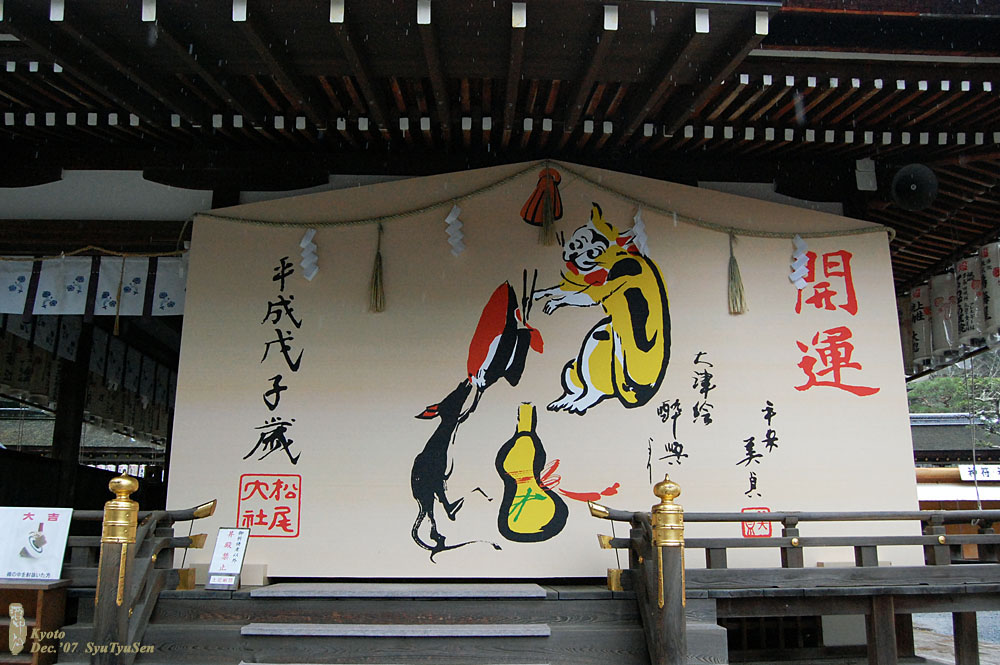 開
運
平成戊子歳
大津絵
酔興
平安
美貞
松尾
大社
大吉
昇殿禁止
Kyoto
Dec.'07 SyuTyuSen